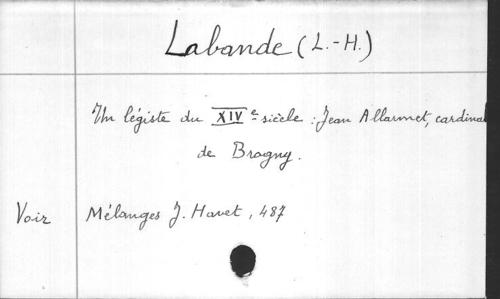 Labande (L.-H.)
Un légiste du XIVe siècle : Jean Allarmet, cardinal
de Brogny.
Voir Mélanges J. Havet, 487